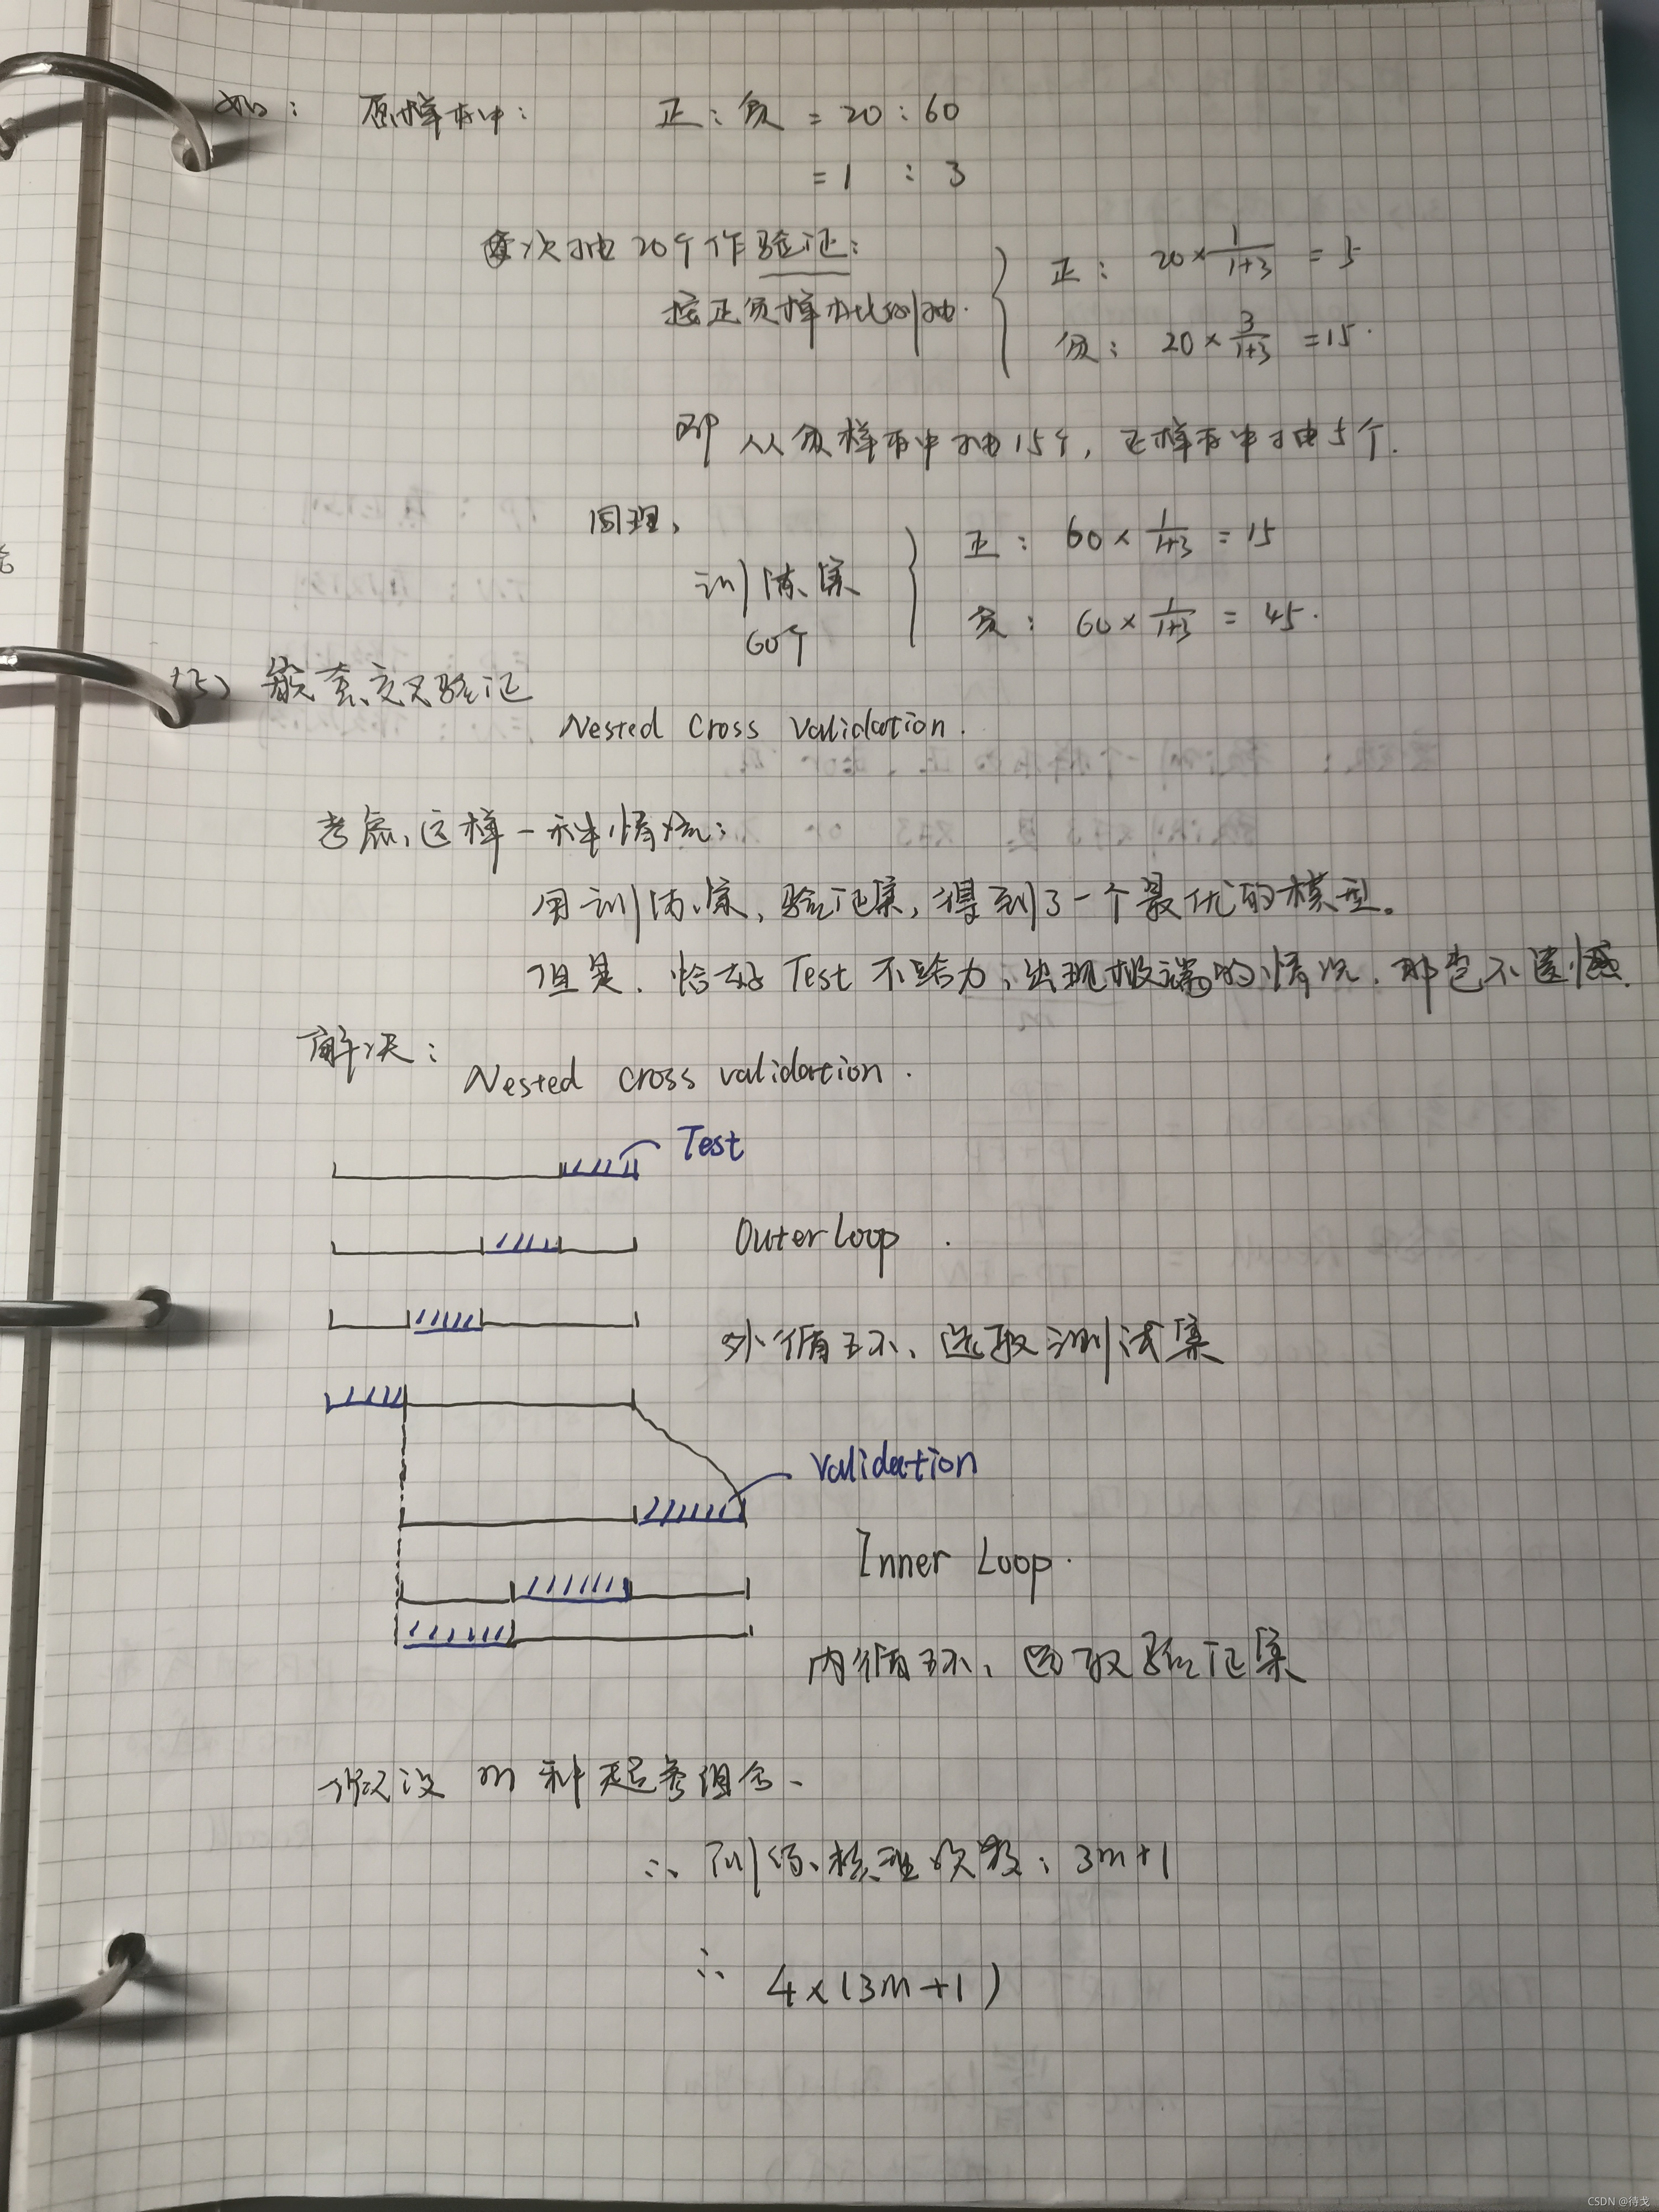 如: 原样本中: 正:负 = 20:60
= 1 : 3
每次抽20个作验证:
按正负样本比例抽.
正: 20×1/(1+3) = 5
负: 20×3/(1+3) = 15.
即 从负样本中抽15个, 正样本中抽5个.
同理,
训练集
60个
正: 60×1/(1+3) = 15
负: 60×1/(1+3) = 45.
(5) 嵌套交叉验证
Nested Cross Validation.
考虑这样一种情况:
用训练集、验证集,得到了一个最优的模型。
但是, 恰好 Test 不给力, 出现极端的情况, 那岂不遗憾.
解决:
Nested cross validation.
Test
Outer Loop.
外循环、选取测试集
Validation
Inner Loop.
内循环、选取验证集
假设 m 种超参组合、
∴ 训练模型次数: 3m+1
∴ 4×(3m+1)
CSDN @待戈